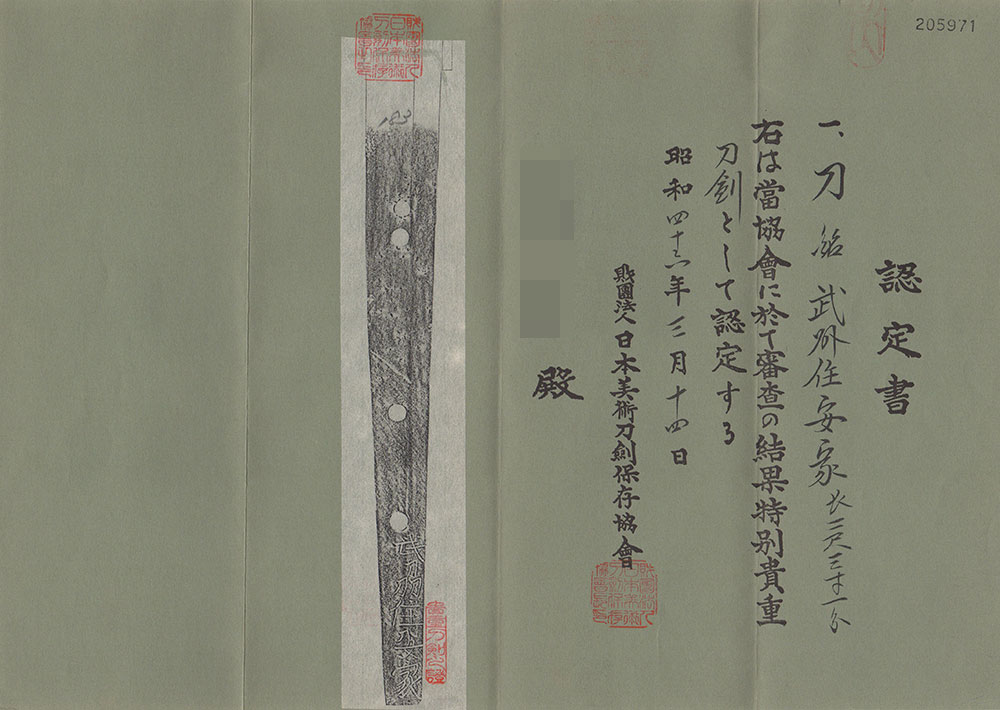 205971
認定書
一、刀 銘 武州住安家 長二尺三寸一分
右は當協會に於て審査の結果特別貴重
刀劍として認定する
昭和四十六年三月十四日
財團法人日本美術刀劍保存協會
殿
183
武州住安家